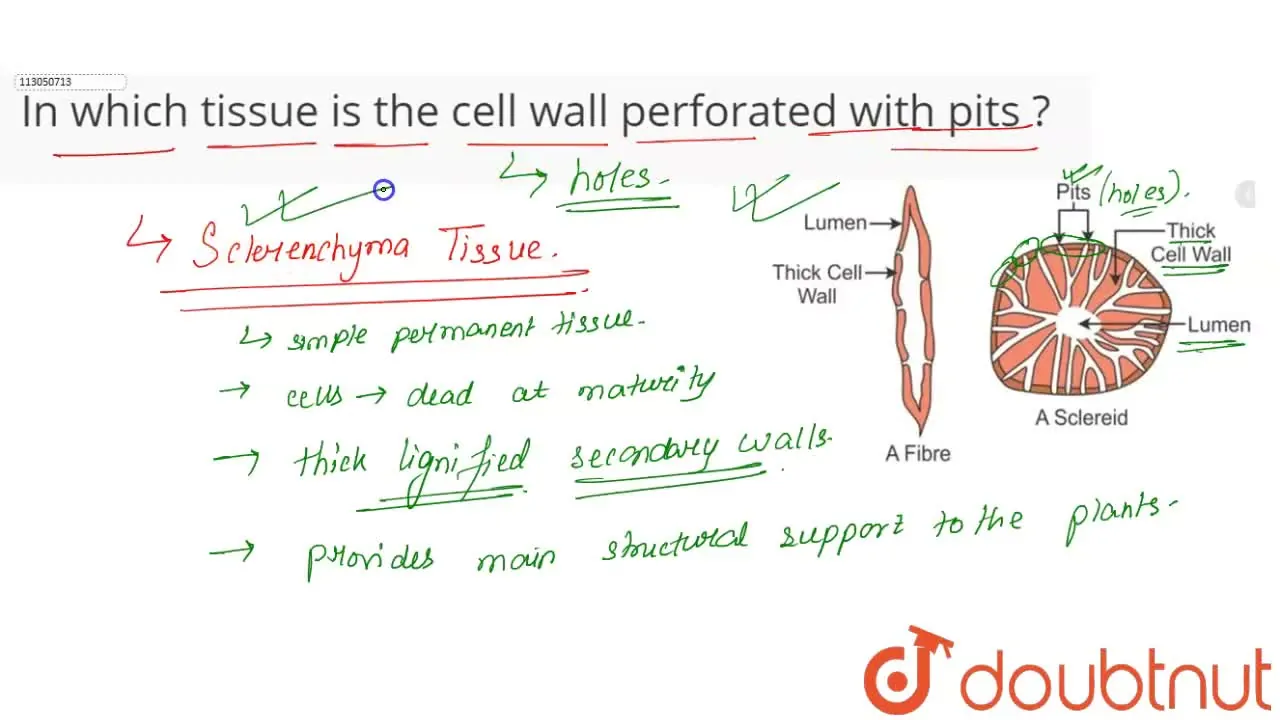 113050713
In which tissue is the cell wall perforated with pits ?
↳ holes.
↳ Sclerenchyma Tissue.
↳ simple permanent tissue.
→ cells → dead at maturity
→ thick lignified secondary walls.
→ provides main structural support to the plants.
Lumen
Thick Cell
Wall
A Fibre
Pits (holes).
Thick
Cell Wall
Lumen
A Sclereid
doubtnut